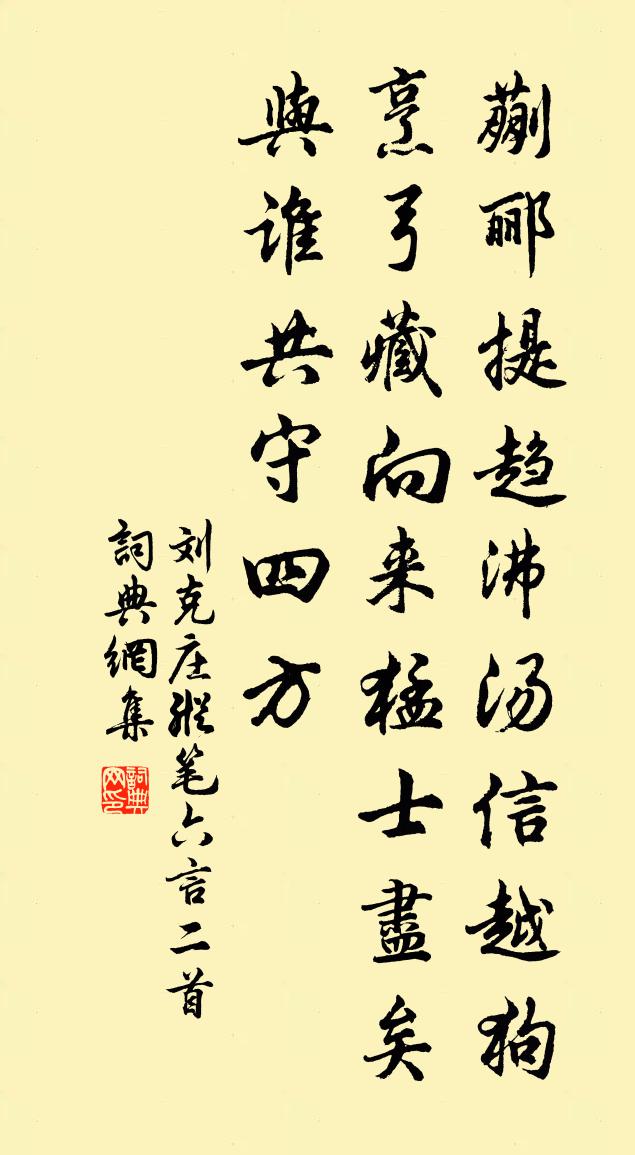 蒯郦提趋沸汤信越狗
烹弓藏向来猛士盡矣
與谁共守四方
刘克庄縱笔六言二首
詞典網集
詞典网印